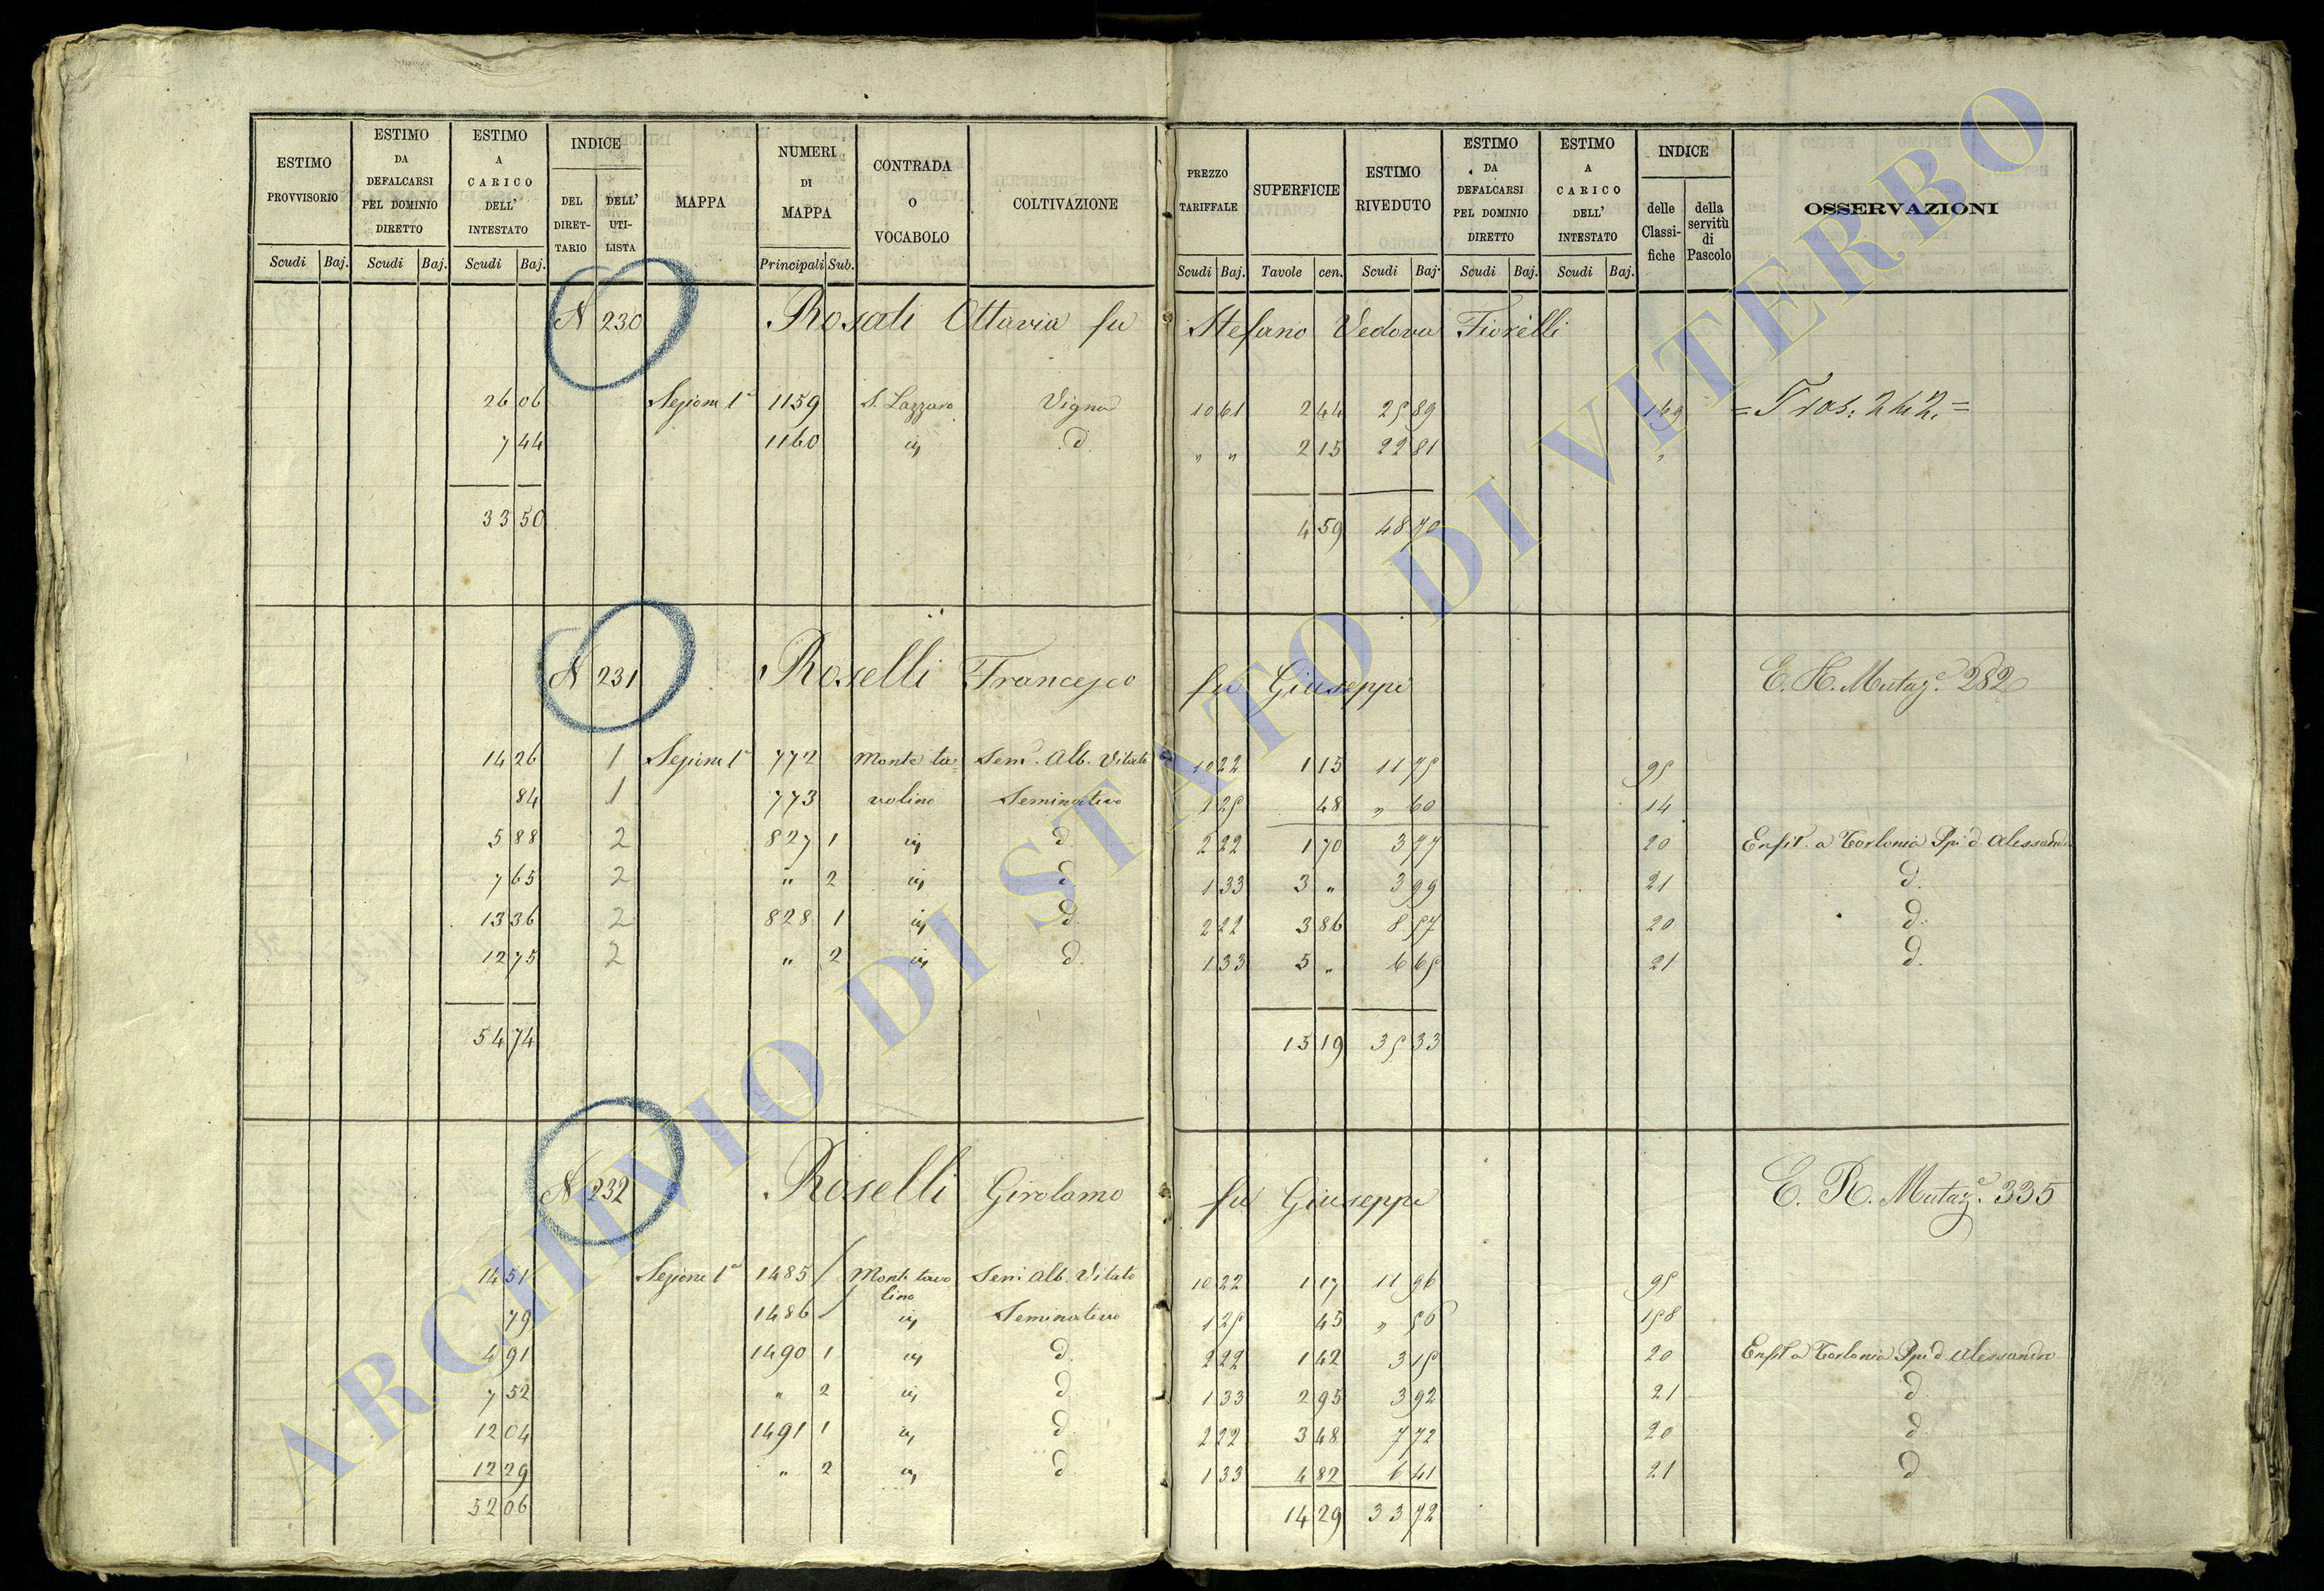 ESTIMO PROVVISORIO | ESTIMO DA DEFALCARSI PEL DOMINIO DIRETTO | ESTIMO A CARICO DELL' INTESTATO | INDICE | MAPPA | NUMERI DI MAPPA | CONTRADA O VOCABOLO | COLTIVAZIONE | PREZZO TARIFFALE | SUPERFICIE | ESTIMO RIVEDUTO | ESTIMO DA DEFALCARSI PEL DOMINIO DIRETTO | ESTIMO A CARICO DELL' INTESTATO | INDICE | OSSERVAZIONI
DEL DIRET-TARIO | DELL' UTI-LISTA | delle Classi-fiche | della servitù di Pascolo
Scudi | Baj. | Scudi | Baj. | Scudi | Baj. | Principali | Sub. | Scudi | Baj. | Tavole | cen. | Scudi | Baj. | Scudi | Baj. | Scudi | Baj.
N 230 Rosati Ottavia fu Stefano Vedova Fiorelli
26 06 Sezione 1a 1159 S. Lazzaro Vigna 10 61 2 44 25 89 169 = Tras. 242. =
7 44 1160 id d. " " 2 15 22 81 "
33 50 4 59 48 70
N 231 Roselli Francesco fu Giuseppe E. R. Mutaz.e 282
14 26 1 Sezione 1a 772 Monte ta= Sem. Alb. Vitato 10 22 1 15 11 75 95
84 1 773 volino Seminativo 1 25 48 " 60 14
5 88 2 827 1 id d. 2 22 1 70 3 77 20 Enfit. a Torlonia Ppe d. Alessandro
7 65 2 " 2 id d 1 33 3 " 3 99 21 d.
13 36 2 828 1 id d. 2 22 3 86 8 57 20 d.
12 75 2 " 2 id d. 1 33 5 " 6 65 21 d.
54 74 15 19 35 33
N 232 Roselli Girolamo fu Giuseppe E. R. Mutaz.e 335
14 51 Sezione 1a 1485 / Monte tavo Sem Alb. Vitato 10 22 1 17 11 96 95
lino
79 1486 / id Seminativo 1 25 45 " 56 158
4 91 1490 1 id d. 2 22 1 42 3 15 20 Enfit a Torlonia Ppe d Alessandro
7 52 " 2 id d 1 33 2 95 3 92 21 d
12 04 1491 1 id d. 2 22 3 48 7 72 20 d
12 29 " 2 id d 1 33 4 82 6 41 21 d
52 06 14 29 33 72
ARCHIVIO DI STATO DI VITERBO